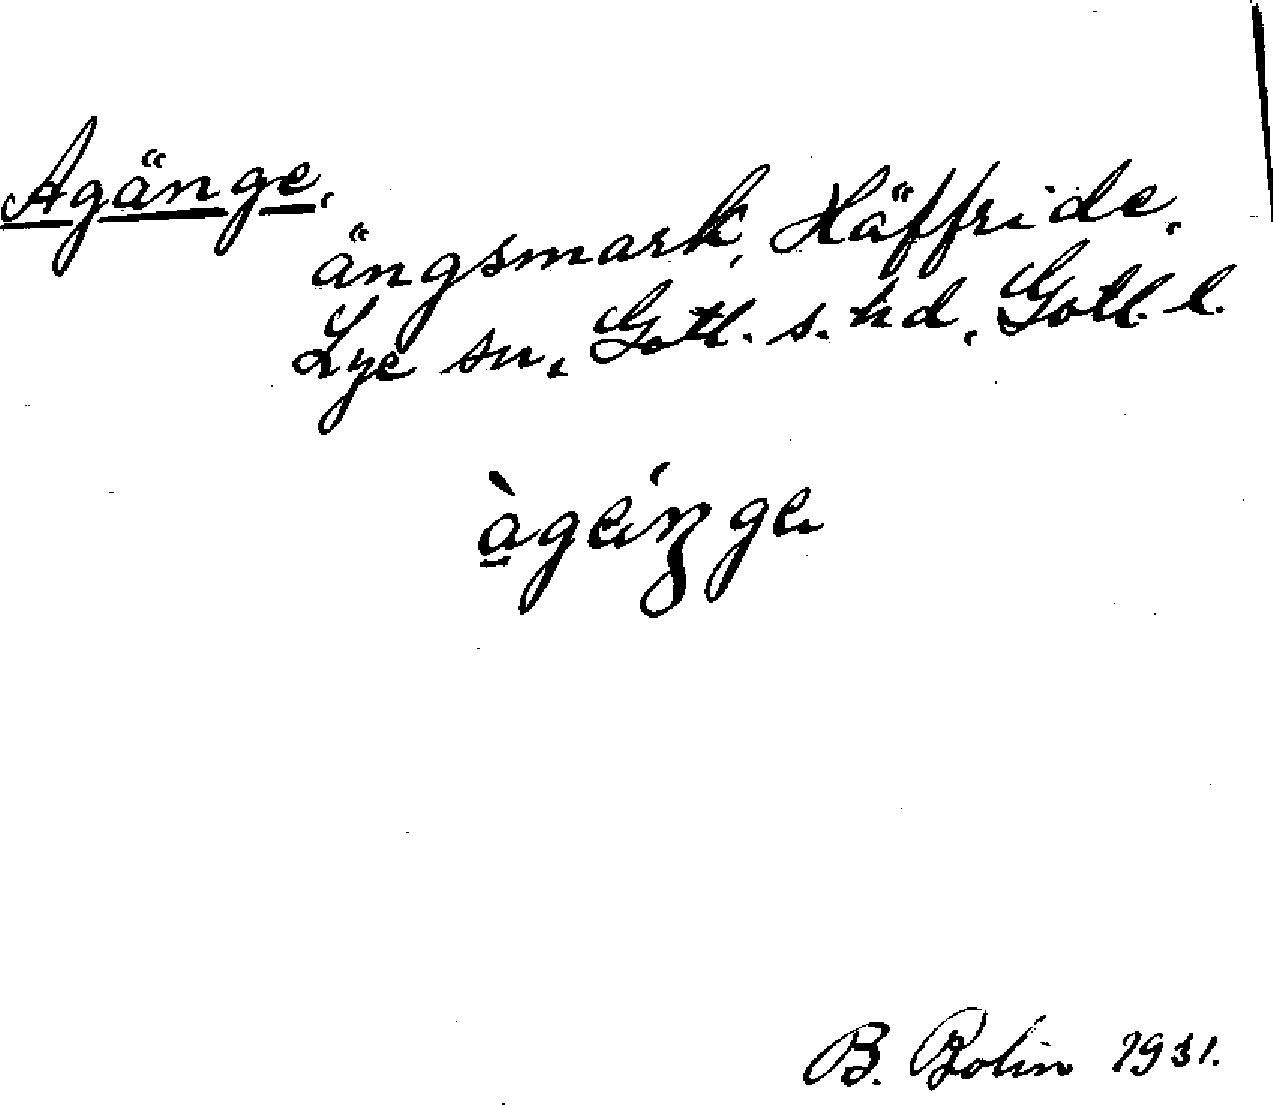 Agänge.
ängsmark, Häffride,
Lye sn, Gotl. s. hd, Gotl. l.
àgeŋ́ge
B. Bolin 1931.